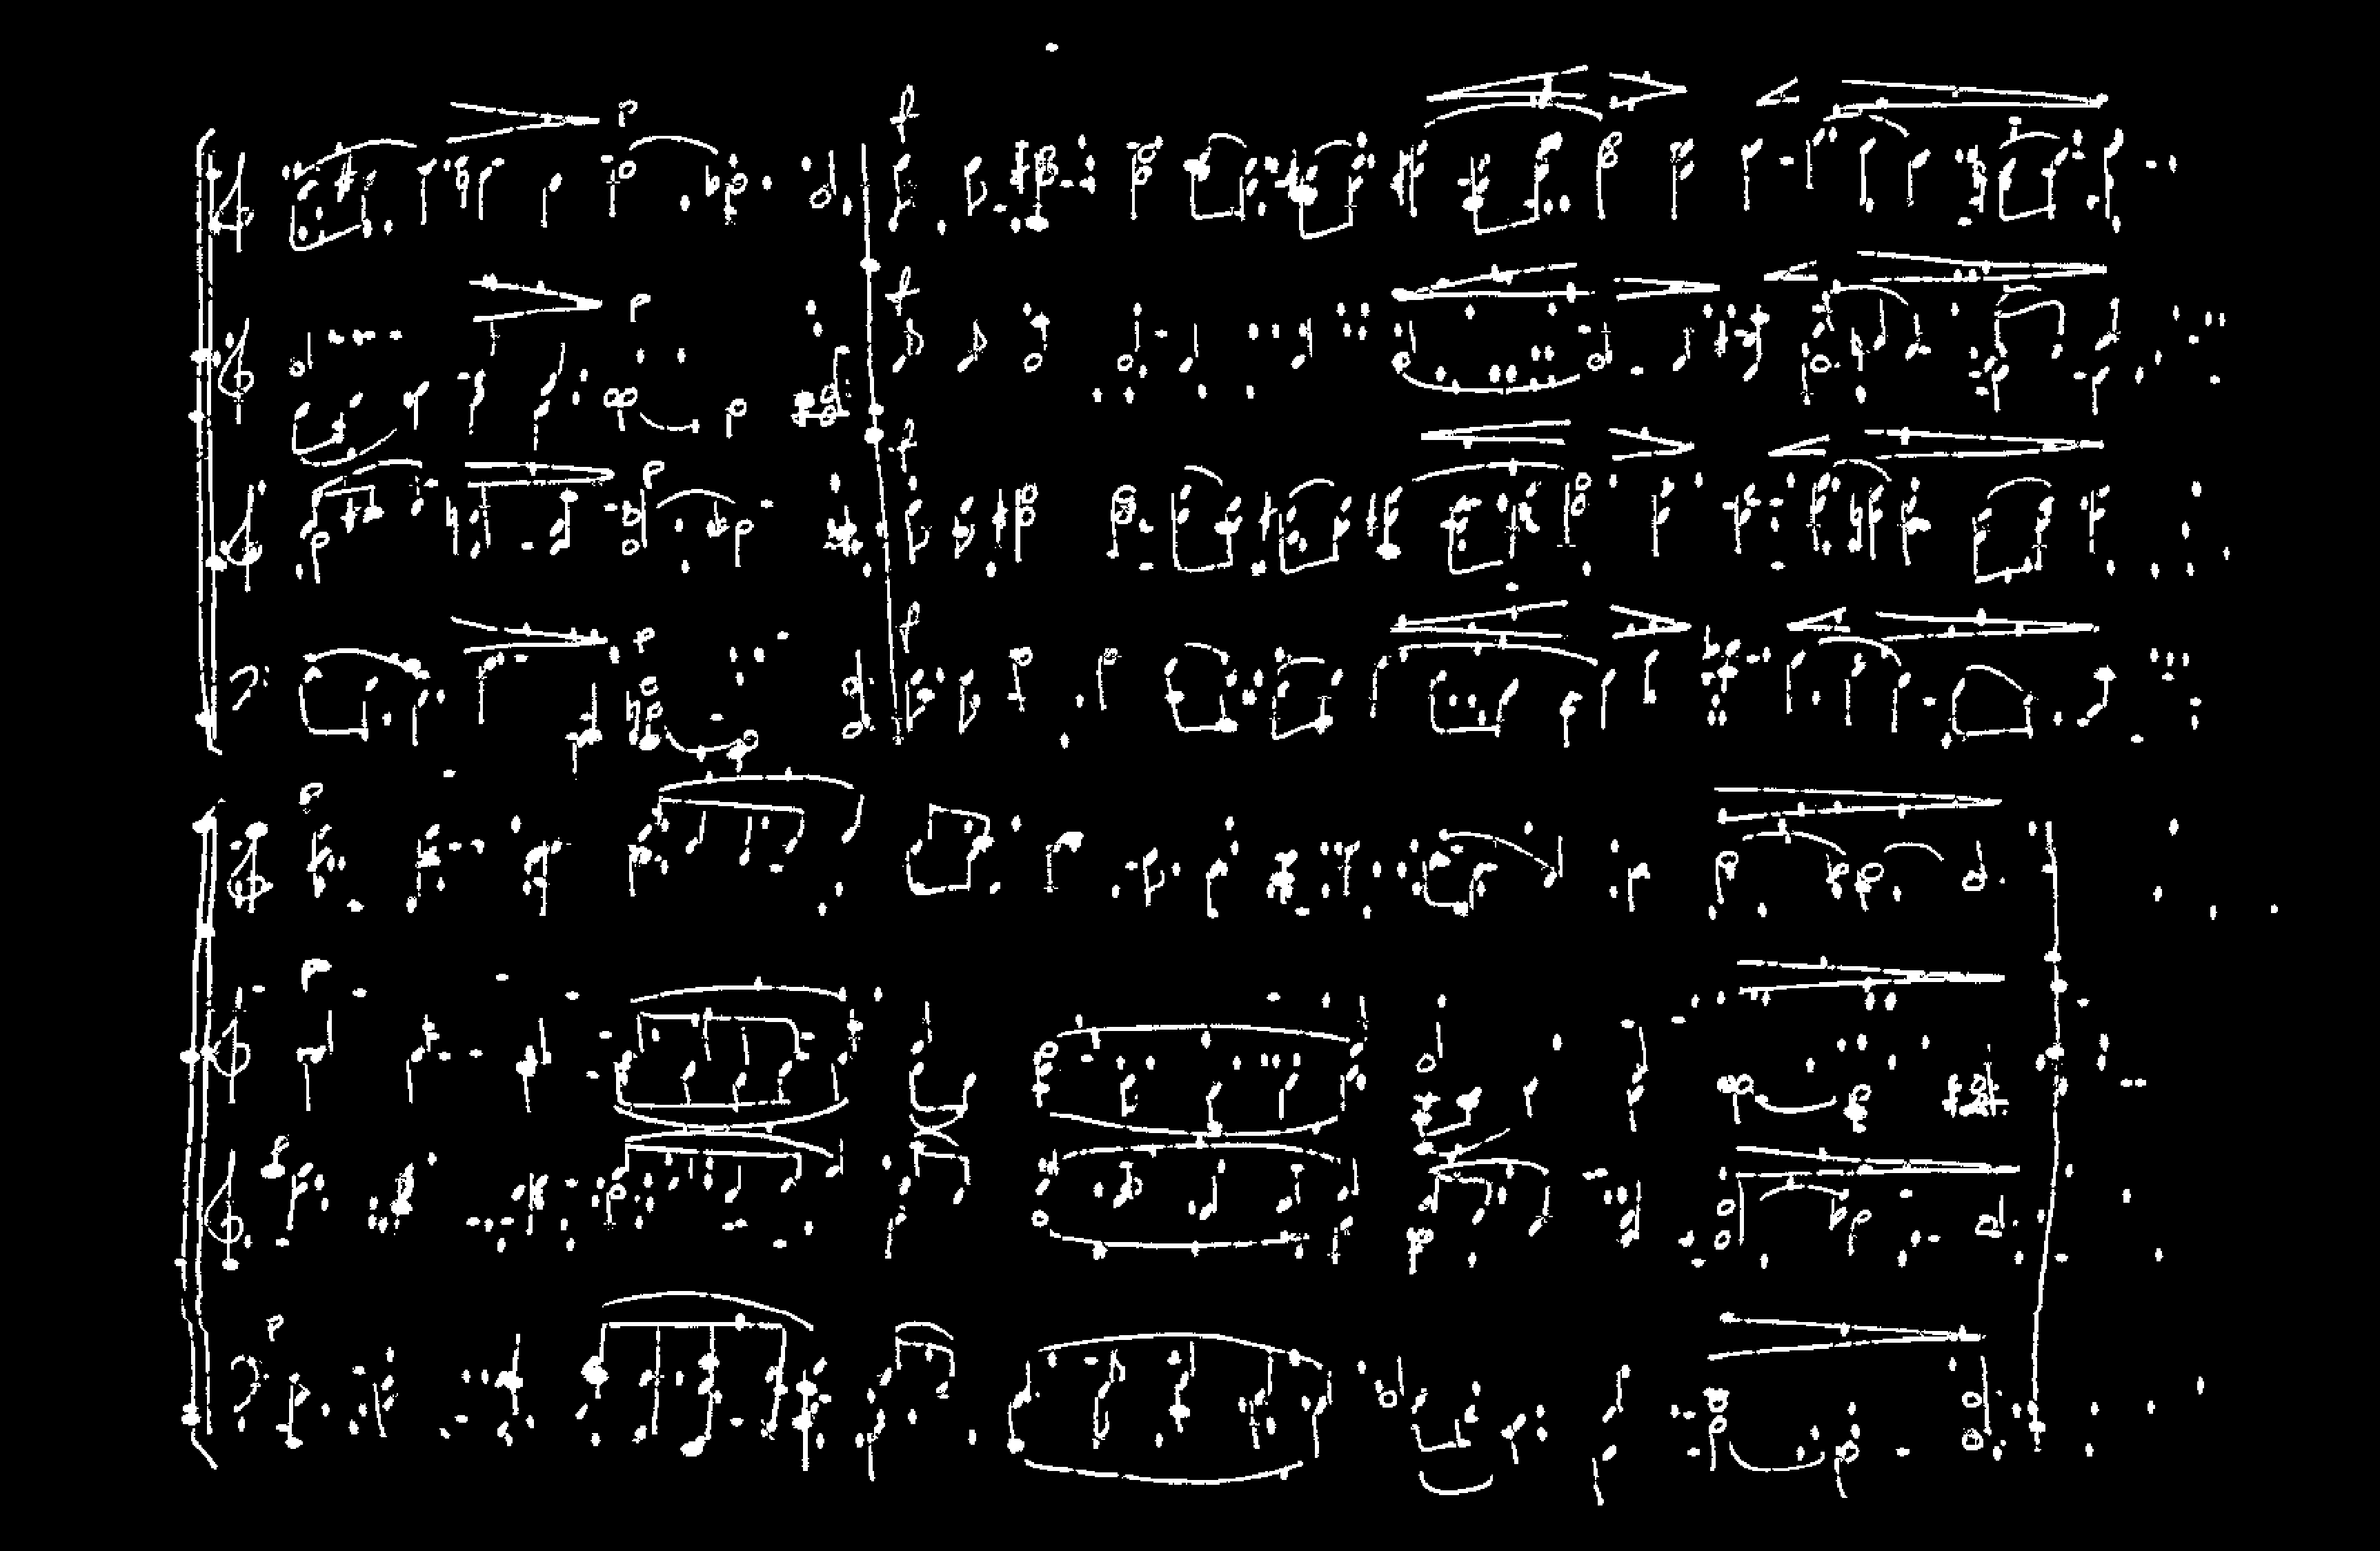 p f
p f
f
p
f
p
p
p
p
p